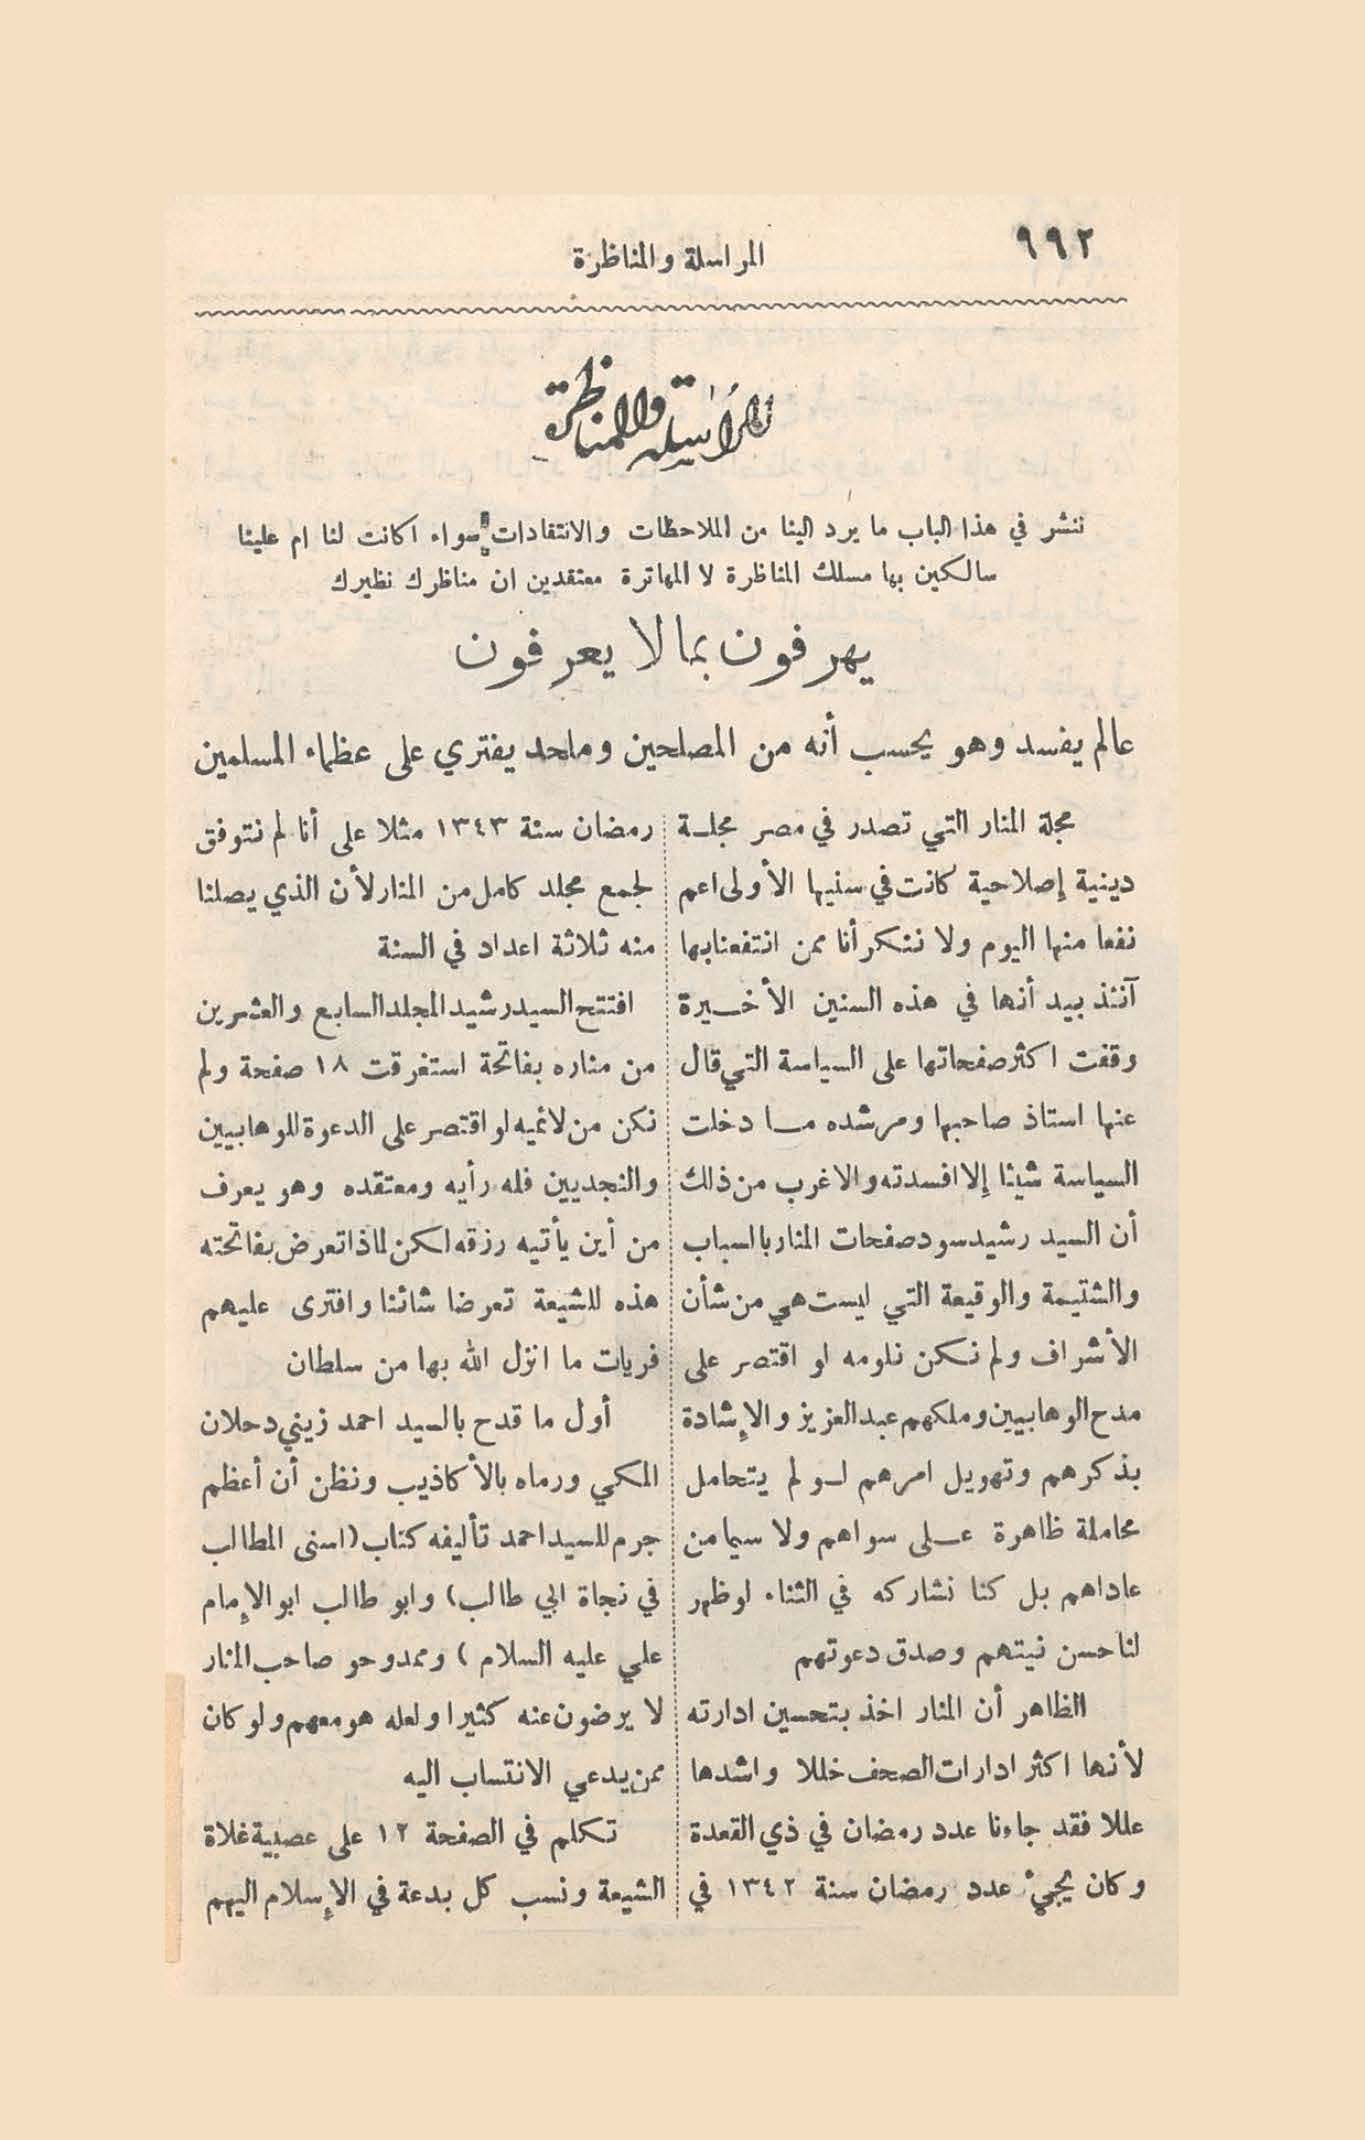 ٩٩٢
المراسلة والمناظرة
المراسلة والمناظرة
ننشر في هذا الباب ما يرد الينا من الملاحظات والانتقادات سواء اكانت لنا ام علينا
سالكين بها مسلك المناظرة لا المهاترة معتقدين ان مناظرك نظيرك
يهرفون بما لا يعرفون
عالم يفسد وهو يحسب أنه من المصلحين وملحد يفتري على عظماء المسلمين
مجلة المنار التي تصدر في مصر مجلة
دينية إصلاحية كانت في سنيها الأولى اعم
نفعا منها اليوم ولا ننكر أنا ممن انتفعنا بها
آنئذ بيد أنها في هذه السنين الأخيرة
وقفت اكثر صفحاتها على السياسة التي قال
عنها استاذ صاحبها ومرشده ما دخلت
السياسة شيئا إلا افسدته والاغرب من ذلك
أن السيد رشيد سود صفحات المنار بالسباب
والشتيمة والوقيعة التي ليست هي من شأن
الأشراف ولم نكن نلومه لو اقتصر على
مدح الوهابيين وملكهم عبد العزيز والإشادة
بذكرهم وتهويل امرهم لو لم يتحامل
محاملة ظاهرة على سواهم ولا سيما من
عاداهم بل كنا نشاركه في الثناء لو ظهر
لنا حسن نيتهم وصدق دعوتهم
الظاهر أن المنار اخذ بتحسين ادارته
لأنها اكثر ادارات الصحف خللا واشدها
عللا فقد جاءنا عدد رمضان في ذي القعدة
وكان يجيء عدد رمضان سنة ١٣٤٢ في
رمضان سنة ١٣٤٣ مثلا على أنا لم نتوفق
لجمع مجلد كامل من المنار لأن الذي يصلنا
منه ثلاثة اعداد في السنة
افتتح السيد رشيد المجلد السابع والعشرين
من مناره بفاتحة استغرقت ١٨ صفحة ولم
نكن من لائميه لو اقتصر على الدعوة للوهابيين
والنجديين فله رأيه ومعتقده وهو يعرف
من أين يأتيه رزقه لكن لماذا تعرض بفاتحته
هذه للشيعة تعرضا شائنا وافترى عليهم
فريات ما انزل الله بها من سلطان
أول ما قدح بالسيد احمد زيني دحلان
المكي ورماه بالأكاذيب ونظن أن أعظم
جرم للسيد احمد تأليفه كتاب (اسنى المطالب
في نجاة ابي طالب) وابو طالب ابو الإمام
علي عليه السلام ) وممدوحو صاحب المنار
لا يرضون عنه كثيرا ولعله هو معهم ولو كان
ممن يدعي الانتساب اليه
تكلم في الصفحة ١٢ على عصبية غلاة
الشيعة ونسب كل بدعة في الإسلام اليهم